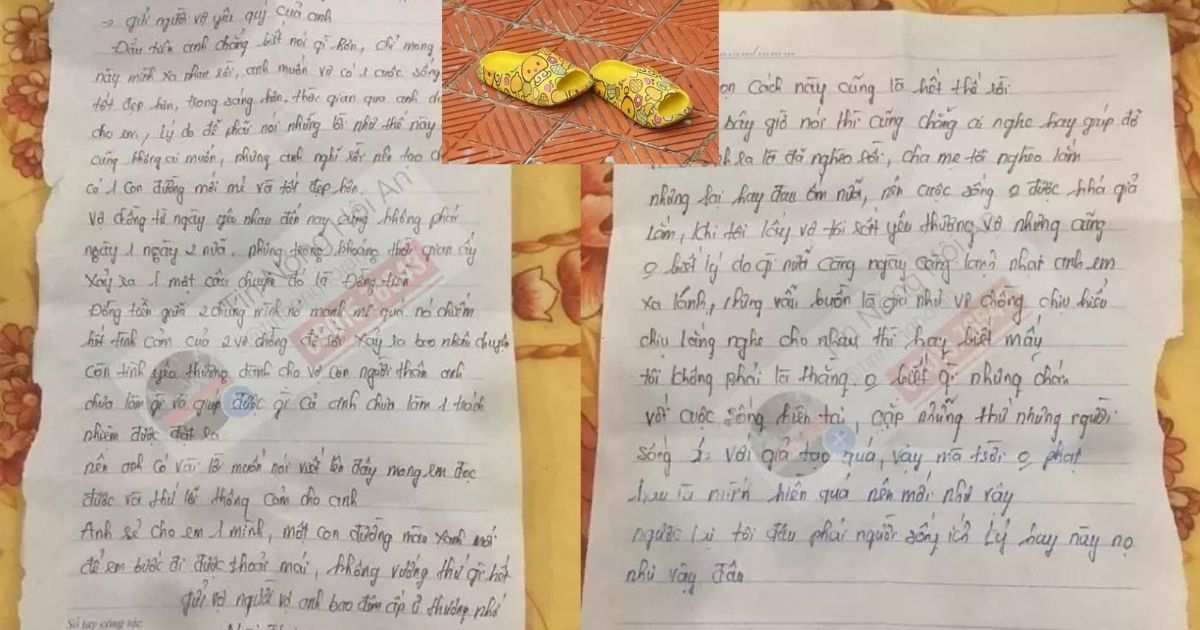 → gửi người vợ yêu quý của anh
Đầu tiên anh chẳng biết nói gì hơn, chỉ mong
này mình xa nhau rồi, anh muốn vợ có 1 cuộc sống
tốt đẹp hơn, trong sáng hơn, thời gian qua anh
cho em, lý do để phải nói những lời như thế này
cũng không ai muốn, nhưng anh nghĩ rồi nên tạo
có 1 con đường mới mẻ và tốt đẹp hơn.
vợ chồng từ ngày yêu nhau đến nay cũng không phải
ngày 1 ngày 2 nữa, nhưng trong khoảng thời gian ấy
xảy ra 1 một câu chuyện đó là Đồng tiền
Đồng tiền giữa 2 chúng mình nó mạnh mẽ quá nó chiếm
hết tình cảm của 2 vợ chồng để rồi xảy ra bao nhiêu chuyện
còn tình yêu thương dành cho vợ con người thân anh
chưa làm gì và giúp được gì cả anh chưa làm 1 trách
nhiệm được đặt ra
nên anh có vài lời muốn nói viết lên đây mong em đọc
được và thứ lỗi thông cảm cho anh
Anh sẽ cho em 1 mình, một con đường màu xanh mới
để em bước đi được thoải mái, không vướng thứ gì hết
gửi vợ người vợ anh bao đêm ấp ủ thương nhớ
Sổ tay công tác
ọn cách này cũng là hết thể rồi
bây giờ nói thì cũng chẳng ai nghe hay giúp đỡ
sinh ra là đã nghèo rồi, cha mẹ tôi nghèo lắm
nhưng lại hay đau ốm nữa, nên cuộc sống o được khá giả
lắm, khi tôi lấy vợ tôi rất yêu thương vợ nhưng cũng
o biết lý do gì nữa càng ngày càng lạnh nhạt anh em
xa lánh, chúng vẫn buồn là giá như vợ chồng chịu hiểu
chịu lắng nghe cho nhau thì hay biết mấy
tôi không phải là thằng o biết gì nhưng chán
với cuộc sống hiện tại, gặp những thứ nhưng người
sống với giả tạo quá, vậy mà trời o phạt
hay là mình hiền quá nên mới như vậy
ngược lại tôi đâu phải người sống ích lý hay này nọ
như vậy đâu